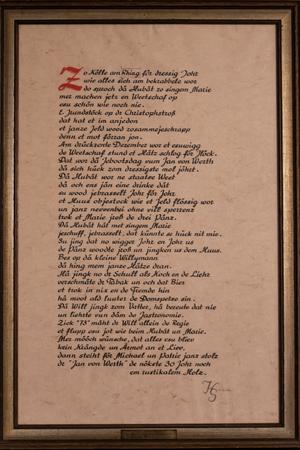 Zo Kölle am Rhing för dressig Johr
wie alles sich am bekrabbele wor
do sproch dä Hubät zo singem Marie
mer machen jetz en Weetschaf op
esu schön wie noch nie.
E Jundstöck op dr Christophstroß
dat hat et in anjedon
et janze Jeld wood zosammejeschrapp
denn et mot förran jon.
Am drückzonte Dezember wor et eeuwigg
de Weetschaf stund et Hätz schlog för Jlöck.
Dat wor dä Jebootsdag vum Jan von Werth
dä sich hück zom dressigste mol jöhet.
Dä Hubät wor ne staatse Weet
dä och ens jän eine drinke dät
su wood jebrasselt Johr för Johr
et Huus objestock wie et Jeld flössig wor
un janz nevvenbei ohne vill sperrenz
trok et Marie jroß de drei Pänz.
Dä Hubät hät met singem Marie
jeschuff, jebrasselt, dat künnte se hück nit mie.
Su jing dat no wigger Johr en Johr us
de Pänz woodte jroß un jingken us dem Huus.
Bes op dä kleine Willymann
dä hing mem janze Hätze dran.
Hä jingk no dr Schull als Koch en de Liehr
verschmäte dr Tabak un och dat Bier
et trok in nix en de Frende hin
hä moot als luuter de Domspetze sin.
Dä Will jingk zom Vatter, hä bereute dat nie
un liehrte vun däm de Jastronomie.
Zick "75" mäht dr Will allein de Regie
et flupp esu jot wie beim Hubät un Marie.
Mer mööch wünsche, dat alles esu bliev
kein Krängde un Armot an et Liev.
dann steiht för Michael un Patric janz stolz
de "Jan von Werth" de nökste 30 Johr noch
em rustikalem Holz.